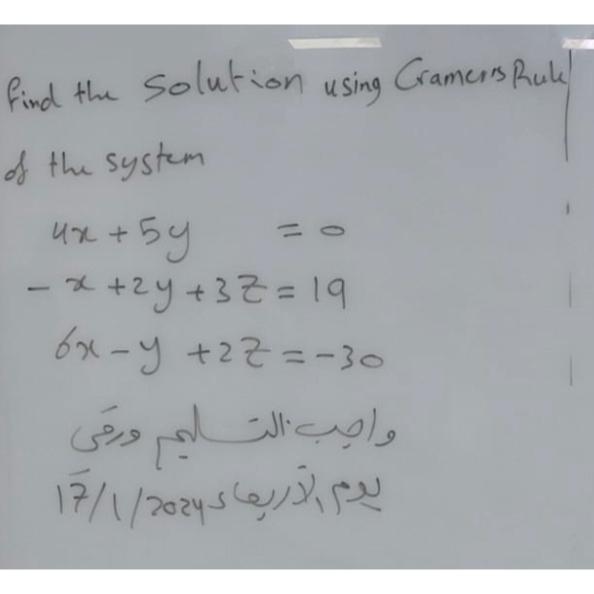 find the solution using Cramers Rule
of the system
4x + 5y = 0
- x + 2y + 3z = 19
6x - y + 2z = -30
واجب التسليم ورقي
يوم الأربعاء 17/1/2024